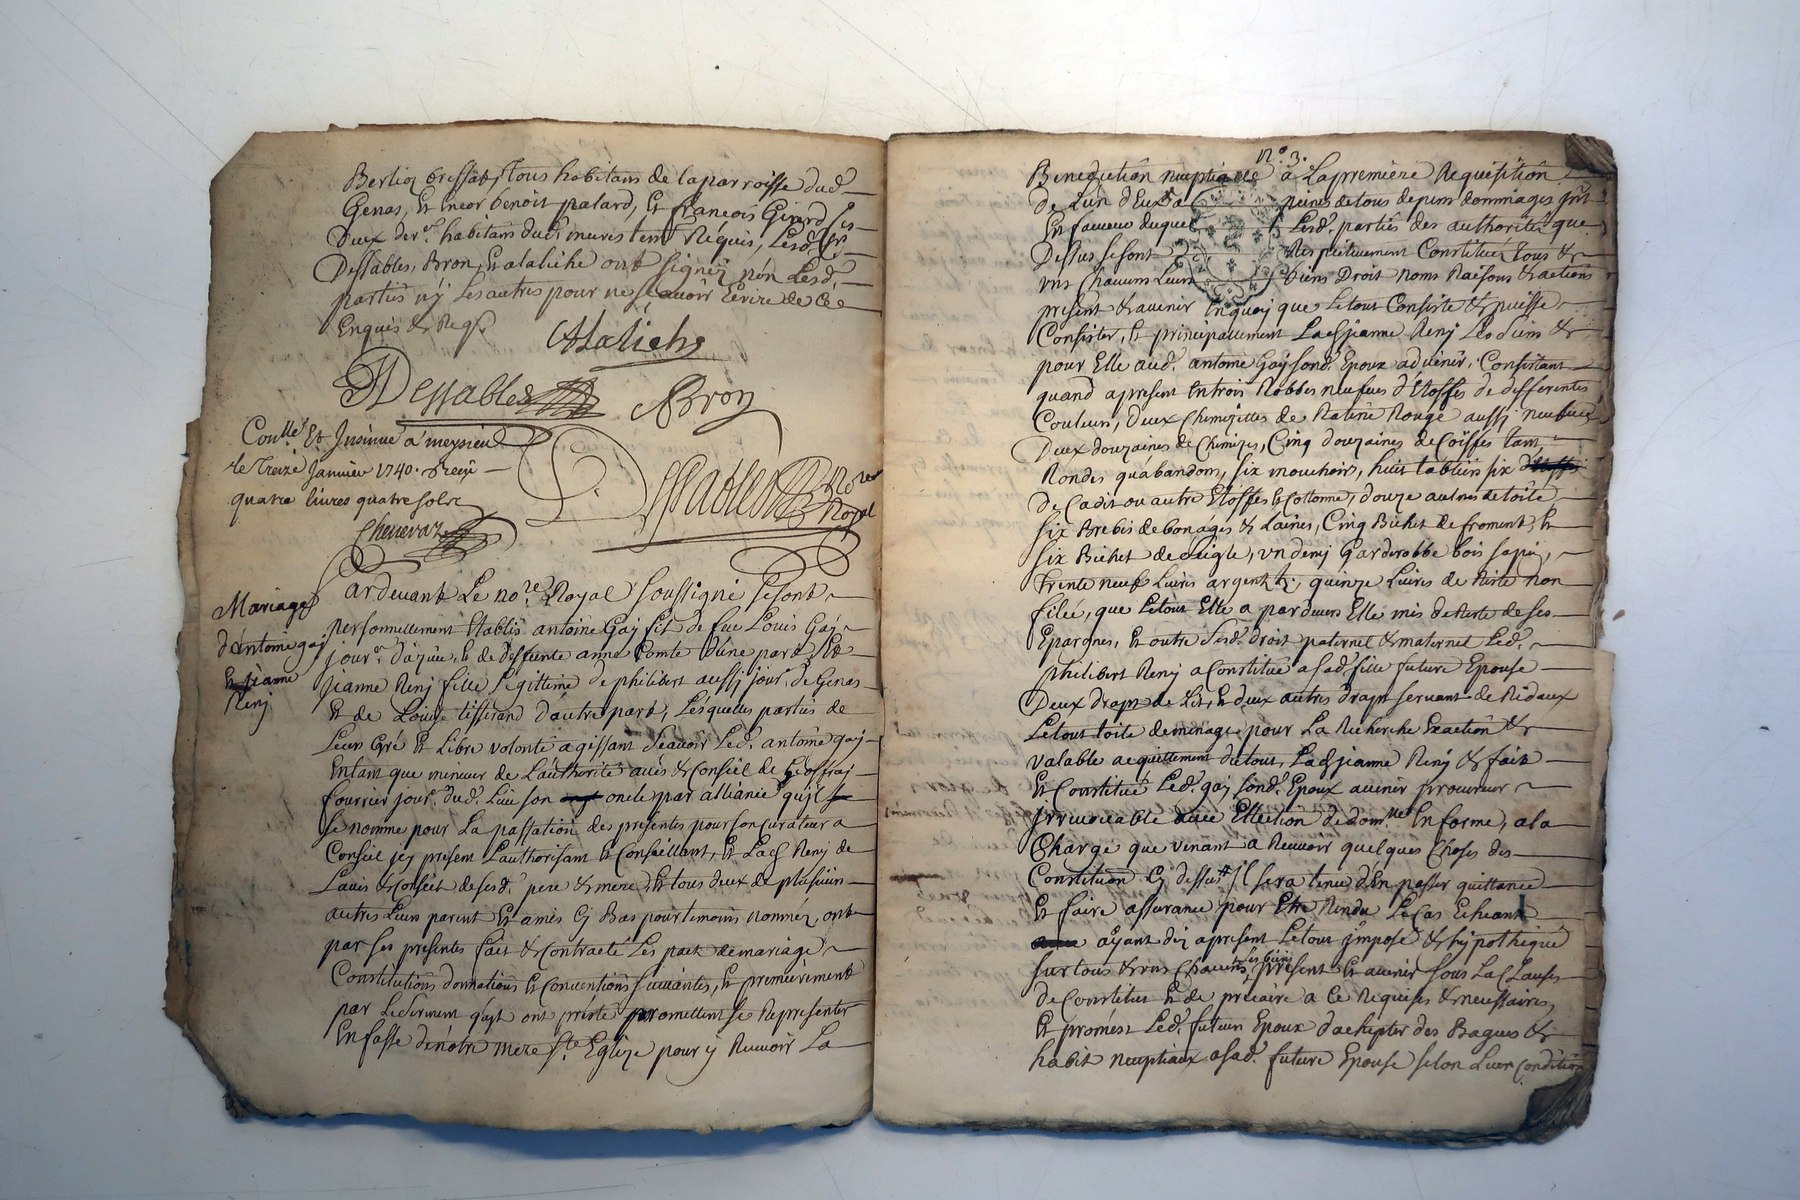 Berlioz tous habitans de la parroisse dud.
Genas, et benoit palard, et francois Girard
Deux der. habitans dud. Requis, Lesd.
Dessables, Bron, et alaliche ont signéz non Lesd.
partiës nÿ Les autres pour ne sçavoir Ecrire de Ce
Enquis & Reqs
Alaliche
Dessables
Bron
Con.lle Et Insinué a meysieu
le treize Janvier 1740. Reçu
quatre livres quatre sols
Chenevaz
Dessables No.re
Royal
Mariage
d'antoine gaj
Et jeanne
Renj
Pardevant Le no.re Royal soussigné se sont
personnellement Etablis antoine Gaj fils de feu Louis Gaj
jour.r et de deffunte anne Comte d'une part, Et
jeanne Renj fille Legittime de philibert aussj jour. de Genas
Et de Louise tisserand d'autre part, Lesquelles partiës de
Leur Gré Et Libre volonté agissant Scavoir Led. antoine gaj
Entant que mineur de L'authorité aviës & Conseil de Geoffraj
fourrier jour. dud. son oncle par alliance qu'jl
se nomme pour La passation des presentes pour son Curateur a
Conseil jcj present L'authorisant Et Conseillant, Et Lad. Renj de
Lavis & Conseil de sesd. pere & mere, Et tous deux de plusieurs
autres Leurs parent Et amis Cj Bas pour temoins nommez, ont
par ses presentes fait & Contracté Les pact de mariage
Constitutions donnations Et Conventions suivantes, Et premièrement
par Le Serment qu'jls ont preté promettent se Representer
En fasse de nôtre mere S.te Eglize pour ÿ Recevoir La
N.o 3.
Benediction nuptialle a La premiere Requisition
de L'un d'Eux a peines de tous depens dommages
En faveur duquel Lesd. partiës des authorités que
Dessus se sont Respectivement Constitués tous &
uns Chacuns Leurs biens Droit noms Raisons & actions
present & avenir En quoj que Le tout Consiste & puisse
Consister, Et principallement Lad. jeanne Renj Les siens &
pour Elle aud. antoine Gaj sond. Epoux advenir, Consistant
quand apresent En trois Robbes neufves d'Etoffes de differentes
Couleurs, Deux Chemizettes de Ratine Rouge aussj neufves
Deux douzaines de Chemizes, Cinq douzaines de Coiffes tant
Rondes qu'abandons, six mouchoirs, huit tabliers six
de Cadis ou autre Etoffes & Cottonne, douze aulnes de toile
six Brebis de bon âges & Laines, Cinq Bichet de froment, Et
six Bichet de seigle, un demj Garderobbe bois sapin,
trente neuf Livres argent quinze Livres de Rite non
filée, que Le tout Elle a par devers Elle mis de Reste de ses
Epargnes, Et outre sesd. droit paternel & maternel Led.
philibert Renj a Constitué a sad. fille future Epouse
Deux draps de Lit, Et deux autres draps servant de Rideaux
Le tout toile de menage pour La Recherche Exaction &
valable acquittement du tout, Lad. jeanne Renj & fait
Et Constitué Led. gaj sond. Epoux avenir procureur
jrrevocable avec Ellection de dom.lle En forme, a la
Charge que venant a Recevoir quelques Choses des
Constitution Cj dessus jl sera tenu d'En passer quittance
Et faire assurance pour Etre Rendu Le Cas Echeant
aÿant dez apresent Le tout jmposé & hÿpothequé
sur tous & uns Chacuns ses biens present Et avenir sous La Clauses
de Constitut Et de precaire a Ce Requises & necessaires,
Et promest Led. futeur Epoux d'achepter des Bagues &
habit nuptiaux a sad. future Epouse selon Leur Condition